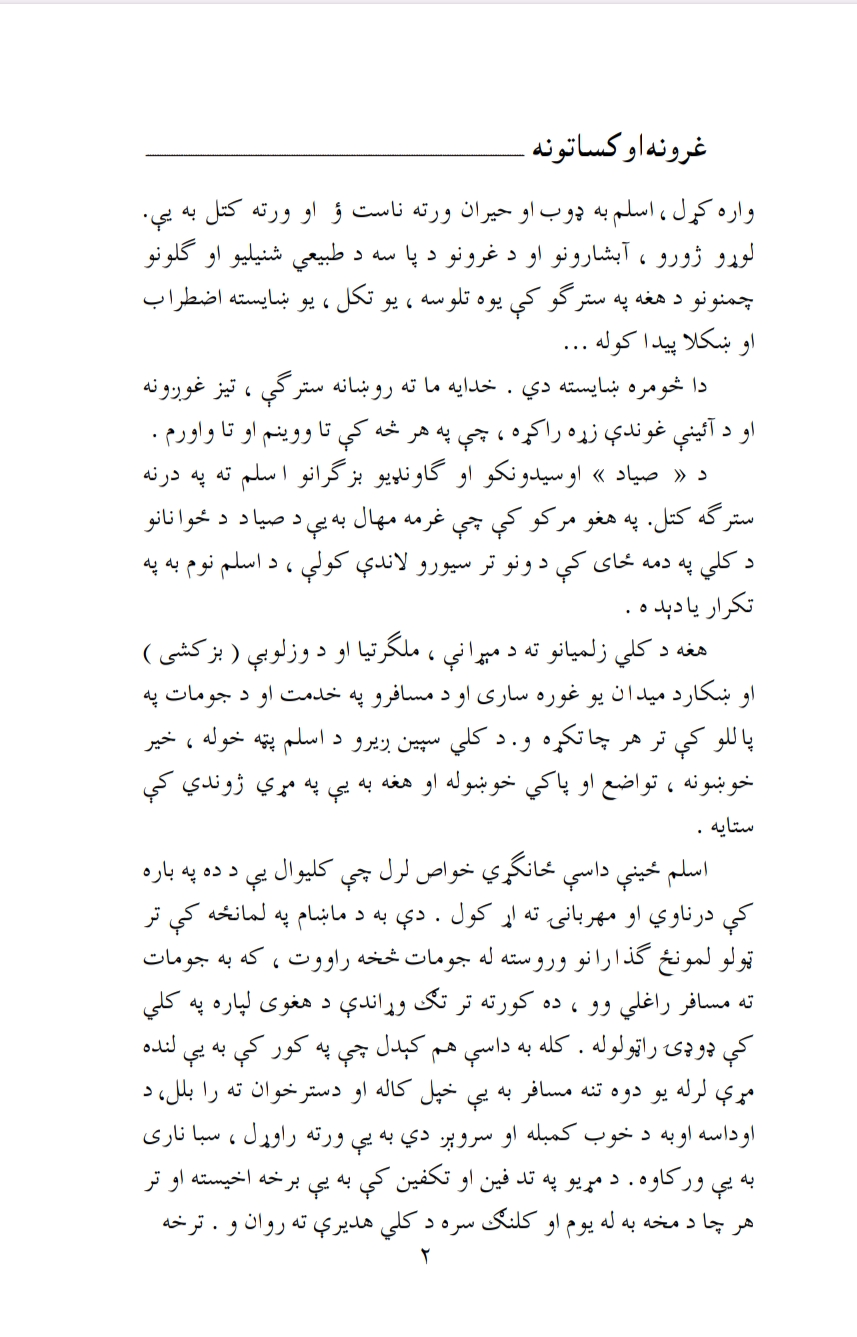 غرونه او کساتونه
واره کړل ، اسلم به ډوب او حیران ورته ناست ؤ او ورته کتل به یې.
لوړو ژورو ، آبشارونو او د غرونو د پا سه د طبیعي شنیلیو او گلونو
چمنونو د هغه په سترگو کې یوه تلوسه ، یو تکل ، یو ښایسته اضطراب
او ښکلا پیدا کوله ...
دا څومره ښایسته دي . خدایه ما ته روښانه سترگې ، تیز غوږونه
او د آئینې غوندې زړه راکړه ، چې په هر څه کې تا ووینم او تا واورم .
د « صیاد » اوسیدونکو او گاونډیو بزگرانو اسلم ته په درنه
سترگه کتل. په هغو مرکو کې چې غرمه مهال به یې د صیاد د ځوانانو
د کلي په دمه ځای کې د ونو تر سیورو لاندې کولې ، د اسلم نوم به په
تکرار یادېده .
هغه د کلي زلمیانو ته د مېړانې ، ملگرتیا او د وزلوبې ( بزکشی )
او ښکارد میدان یو غوره ساری او د مسافرو په خدمت او د جومات په
پاللو کې تر هر چا تکړه و. د کلي سپین ږیرو د اسلم پټه خوله ، خیر
خوښونه ، تواضع او پاکي خوښوله او هغه به یې په مړي ژوندي کې
ستایه .
اسلم ځینې داسې ځانگړي خواص لرل چې کلیوال یې د ده په باره
کې درناوي او مهربانۍ ته اړ کول . دې به د ماښام په لمانځه کې تر
ټولو لمونځ گذارانو وروسته له جومات څخه راووت ، که به جومات
ته مسافر راغلي وو ، ده کورته تر تگ وړاندې د هغوی لپاره په کلي
کې ډوډۍ راټولوله . کله به داسې هم کېدل چې په کور کې به یې لنده
مړې لرله یو دوه تنه مسافر به یې خپل کاله او دسترخوان ته را بلل، د
اوداسه اوبه د خوب کمبله او سروېږ دي به یې ورته راوړل ، سبا ناری
به یې ورکاوه . د مړیو په تد فین او تکفین کې به یې برخه اخیسته او تر
هر چا د مخه به له یوم او کلنگ سره د کلي هدیرې ته روان و . ترخه
۲